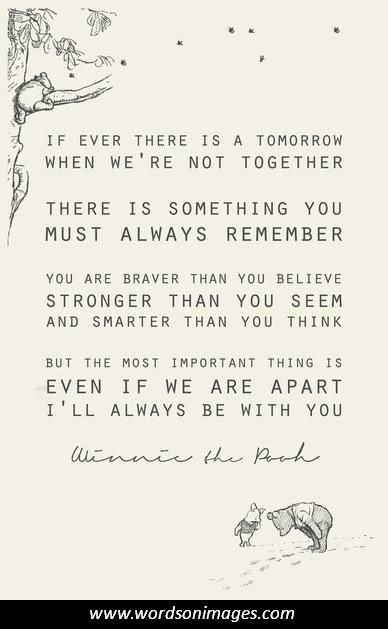 IF EVER THERE IS A TOMORROW
WHEN WE'RE NOT TOGETHER
THERE IS SOMETHING YOU
MUST ALWAYS REMEMBER
YOU ARE BRAVER THAN YOU BELIEVE
STRONGER THAN YOU SEEM
AND SMARTER THAN YOU THINK
BUT THE MOST IMPORTANT THING IS
EVEN IF WE ARE APART
I'LL ALWAYS BE WITH YOU
Winnie the Pooh
www.wordsonimages.com